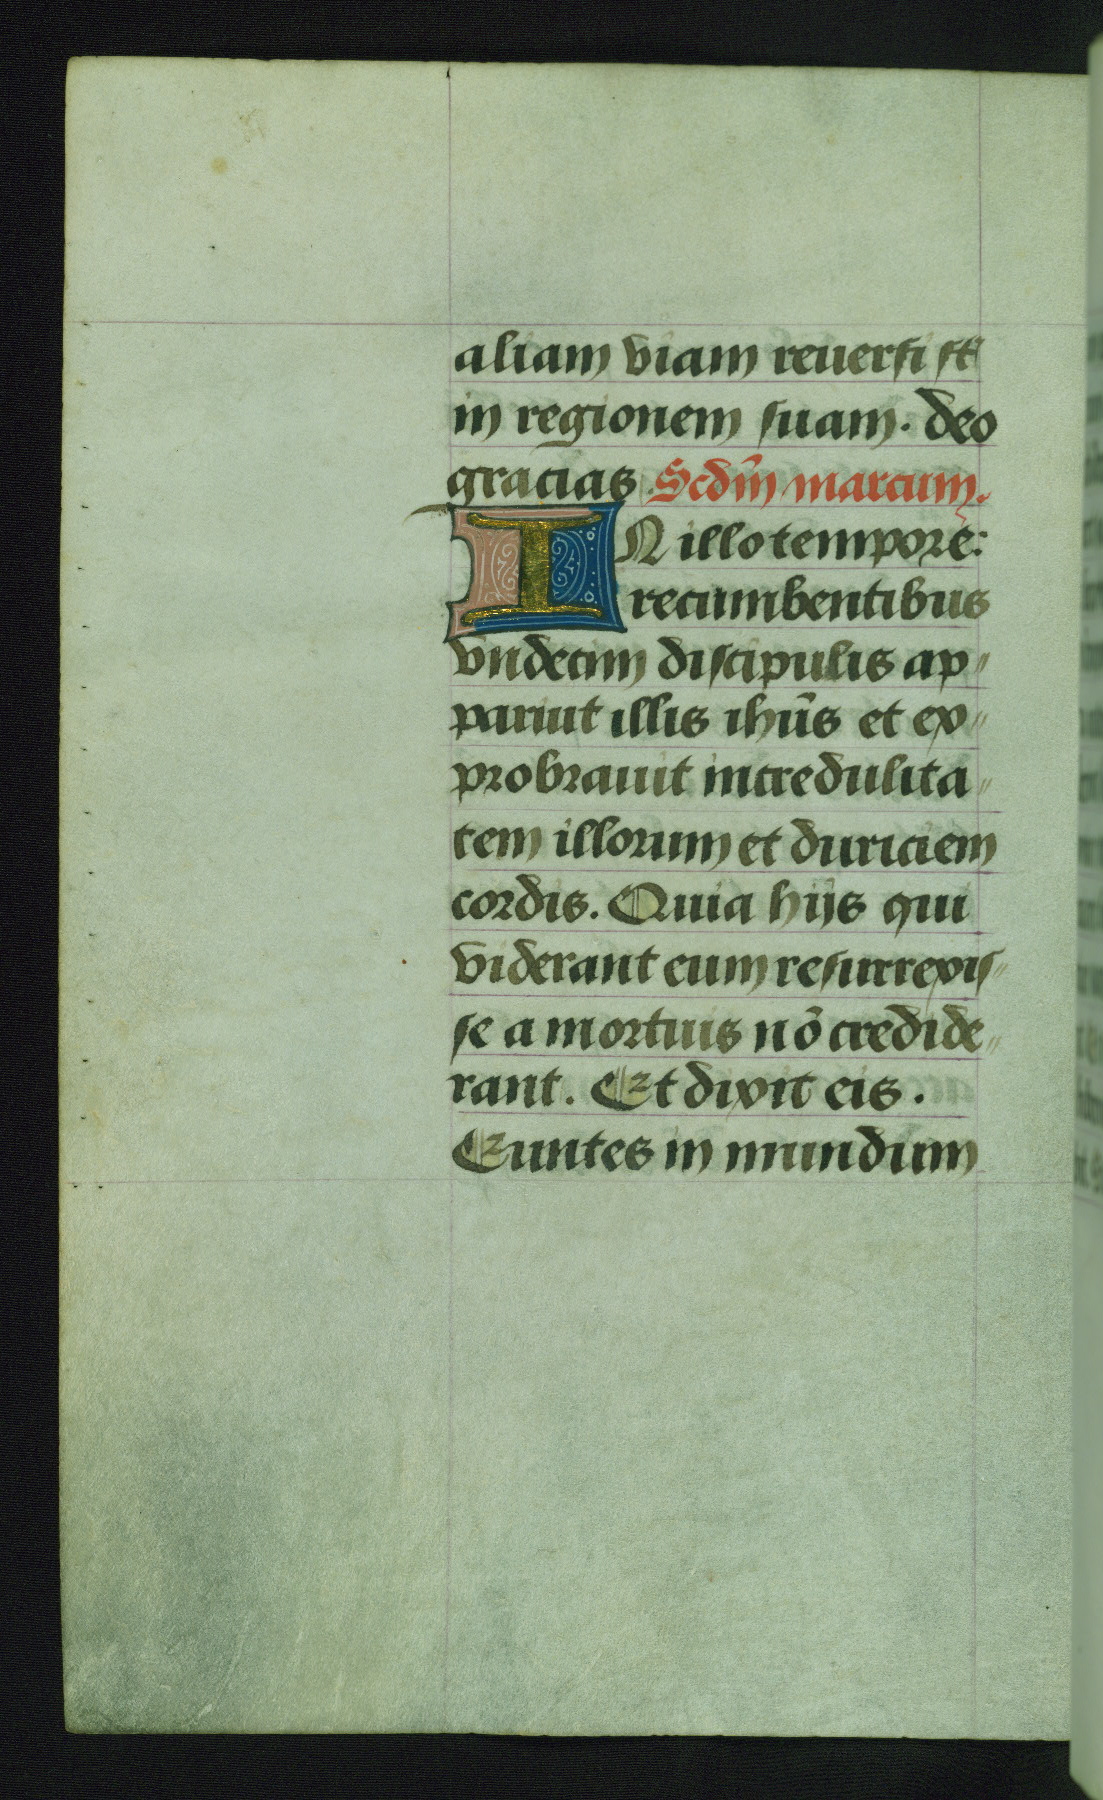 aliam viam reuersi st̄
in regionem suam. deo
gracias Scdm̄ marcum.
IN illo tempore:
recumbentibus
vndecim discipulis ap„
paruit illis ihūs et ex„
probrauit incredulita„
tem illorum et duriciem
cordis. Quia hijs qui
viderant eum resurrexis„
se a mortuis nō credide„
rant. Et dixit eis.
Euntes in mundum